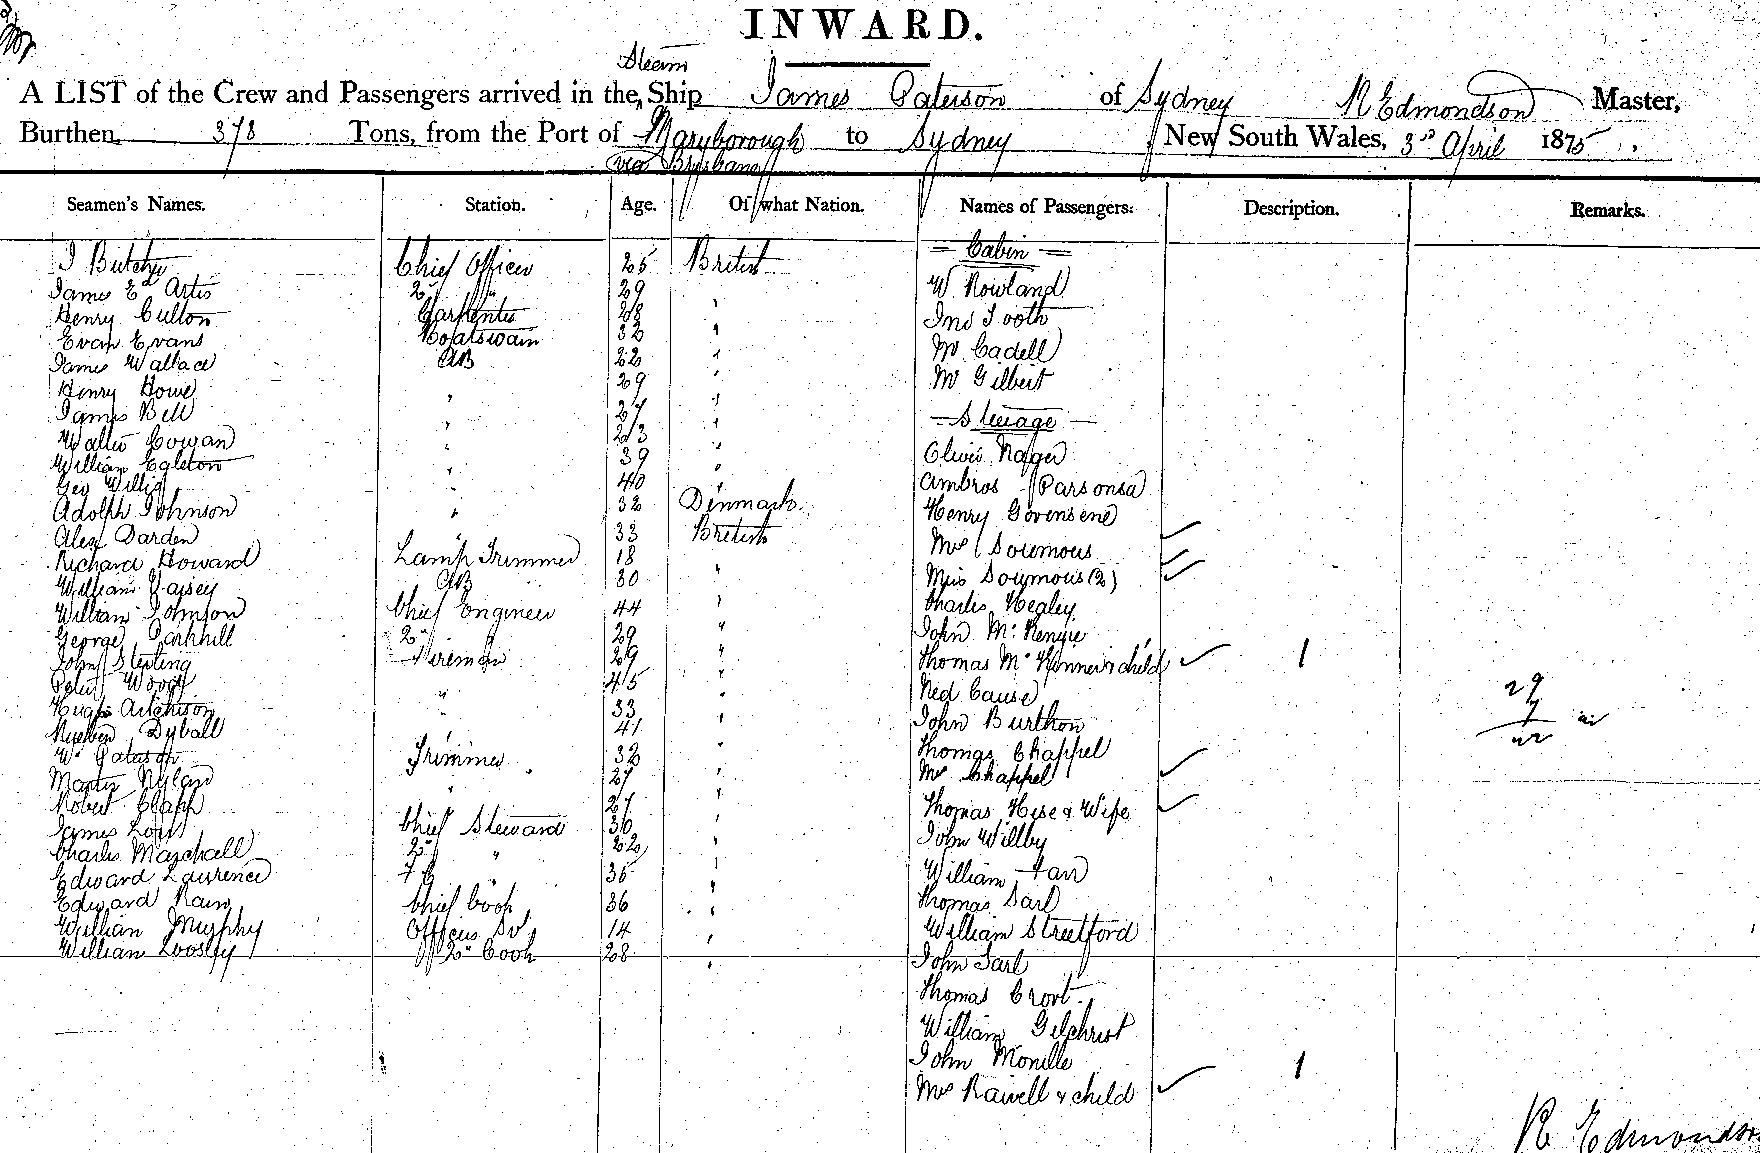 INWARD.
Steam
A LIST of the Crew and Passengers arrived in the Ship James Paterson of Sydney R Edmondson Master,
Burthen, 378 Tons, from the Port of Maryborough to Sydney New South Wales, 3rd April 1875.
via Brisbane
Seamen's Names. Station. Age. Of what Nation. Names of Passengers. Description. Remarks.
— Cabin —
J Butcher Chief Officer 25 British
James Ed Artis 2d " 29 " W. Rowland
Henry Culton Carpenter 28 " Jno Tooth
Evan Evans Boatswain 32 " Mr Cadell
James Wallace AB 22 "
Henry Howe " 29 " Mr Gilbert
James Bell " 27 " — Steerage —
Walter Cowan " 23 "
William Egleton " 39 " Oliver
Geo Willis " 40 " Ambros Parsonsa
Adolph Johnson " 32 Denmark Henry
Alex Darden " 33 British Mrs
Richard Howard Lamp Trimmer 18 " Miss (2)
William Vaisey AB 30 " Charles Hegley
William Johnson Chief Engineer 44 "
George Parkhill 2d " 29 " John
John Sterling Fireman 29 " Thomas & child 1
Peter Wood " 45 " Ned Cause
Hugh Aitchison " 33 " John Burthon
Reuben Dyball " 41 " Thomas Chappel
Wm Paterson Trimmer 32 " Mrs Chappel
Martin Nylan " 27 "
Robert Clapp " 27 " Thomas Hise & Wife
James Chief Steward 30 " John Willby
Charles Marshall 2d " 22 "
Edward Lawrence " 35 " William
Edward Rain Chief Cook 36 " Thomas Sarl
William Murphy Officers Sv 14 " William Streetford
William Loosley 2d Cook 28 " John Sarl
Thomas
William Gilchrist
John
Mrs & child 1
29
7
R Edmondson